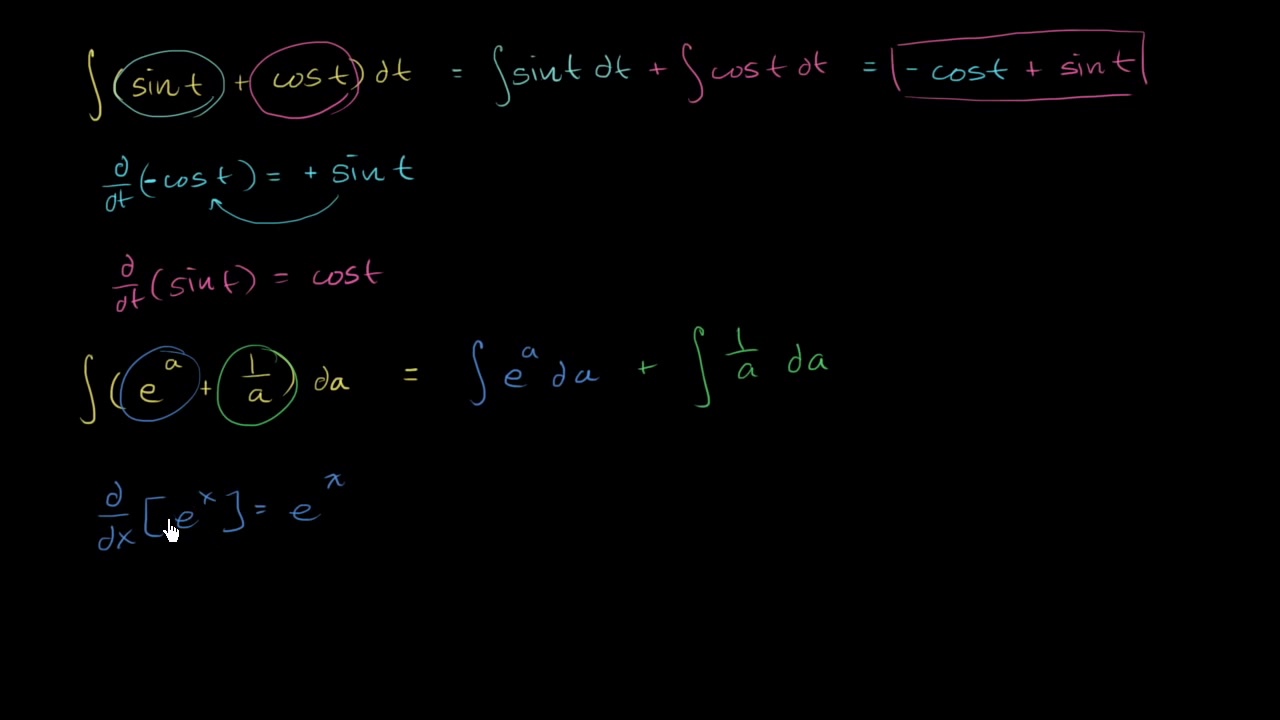 ∫(sin t + cos t) dt = ∫sin t dt + ∫cos t dt = - cos t + sin t
d/dt (-cos t) = + sin t
d/dt (sin t) = cos t
∫(e^a + 1/a) da = ∫e^a da + ∫1/a da
d/dx [e^x] = e^x